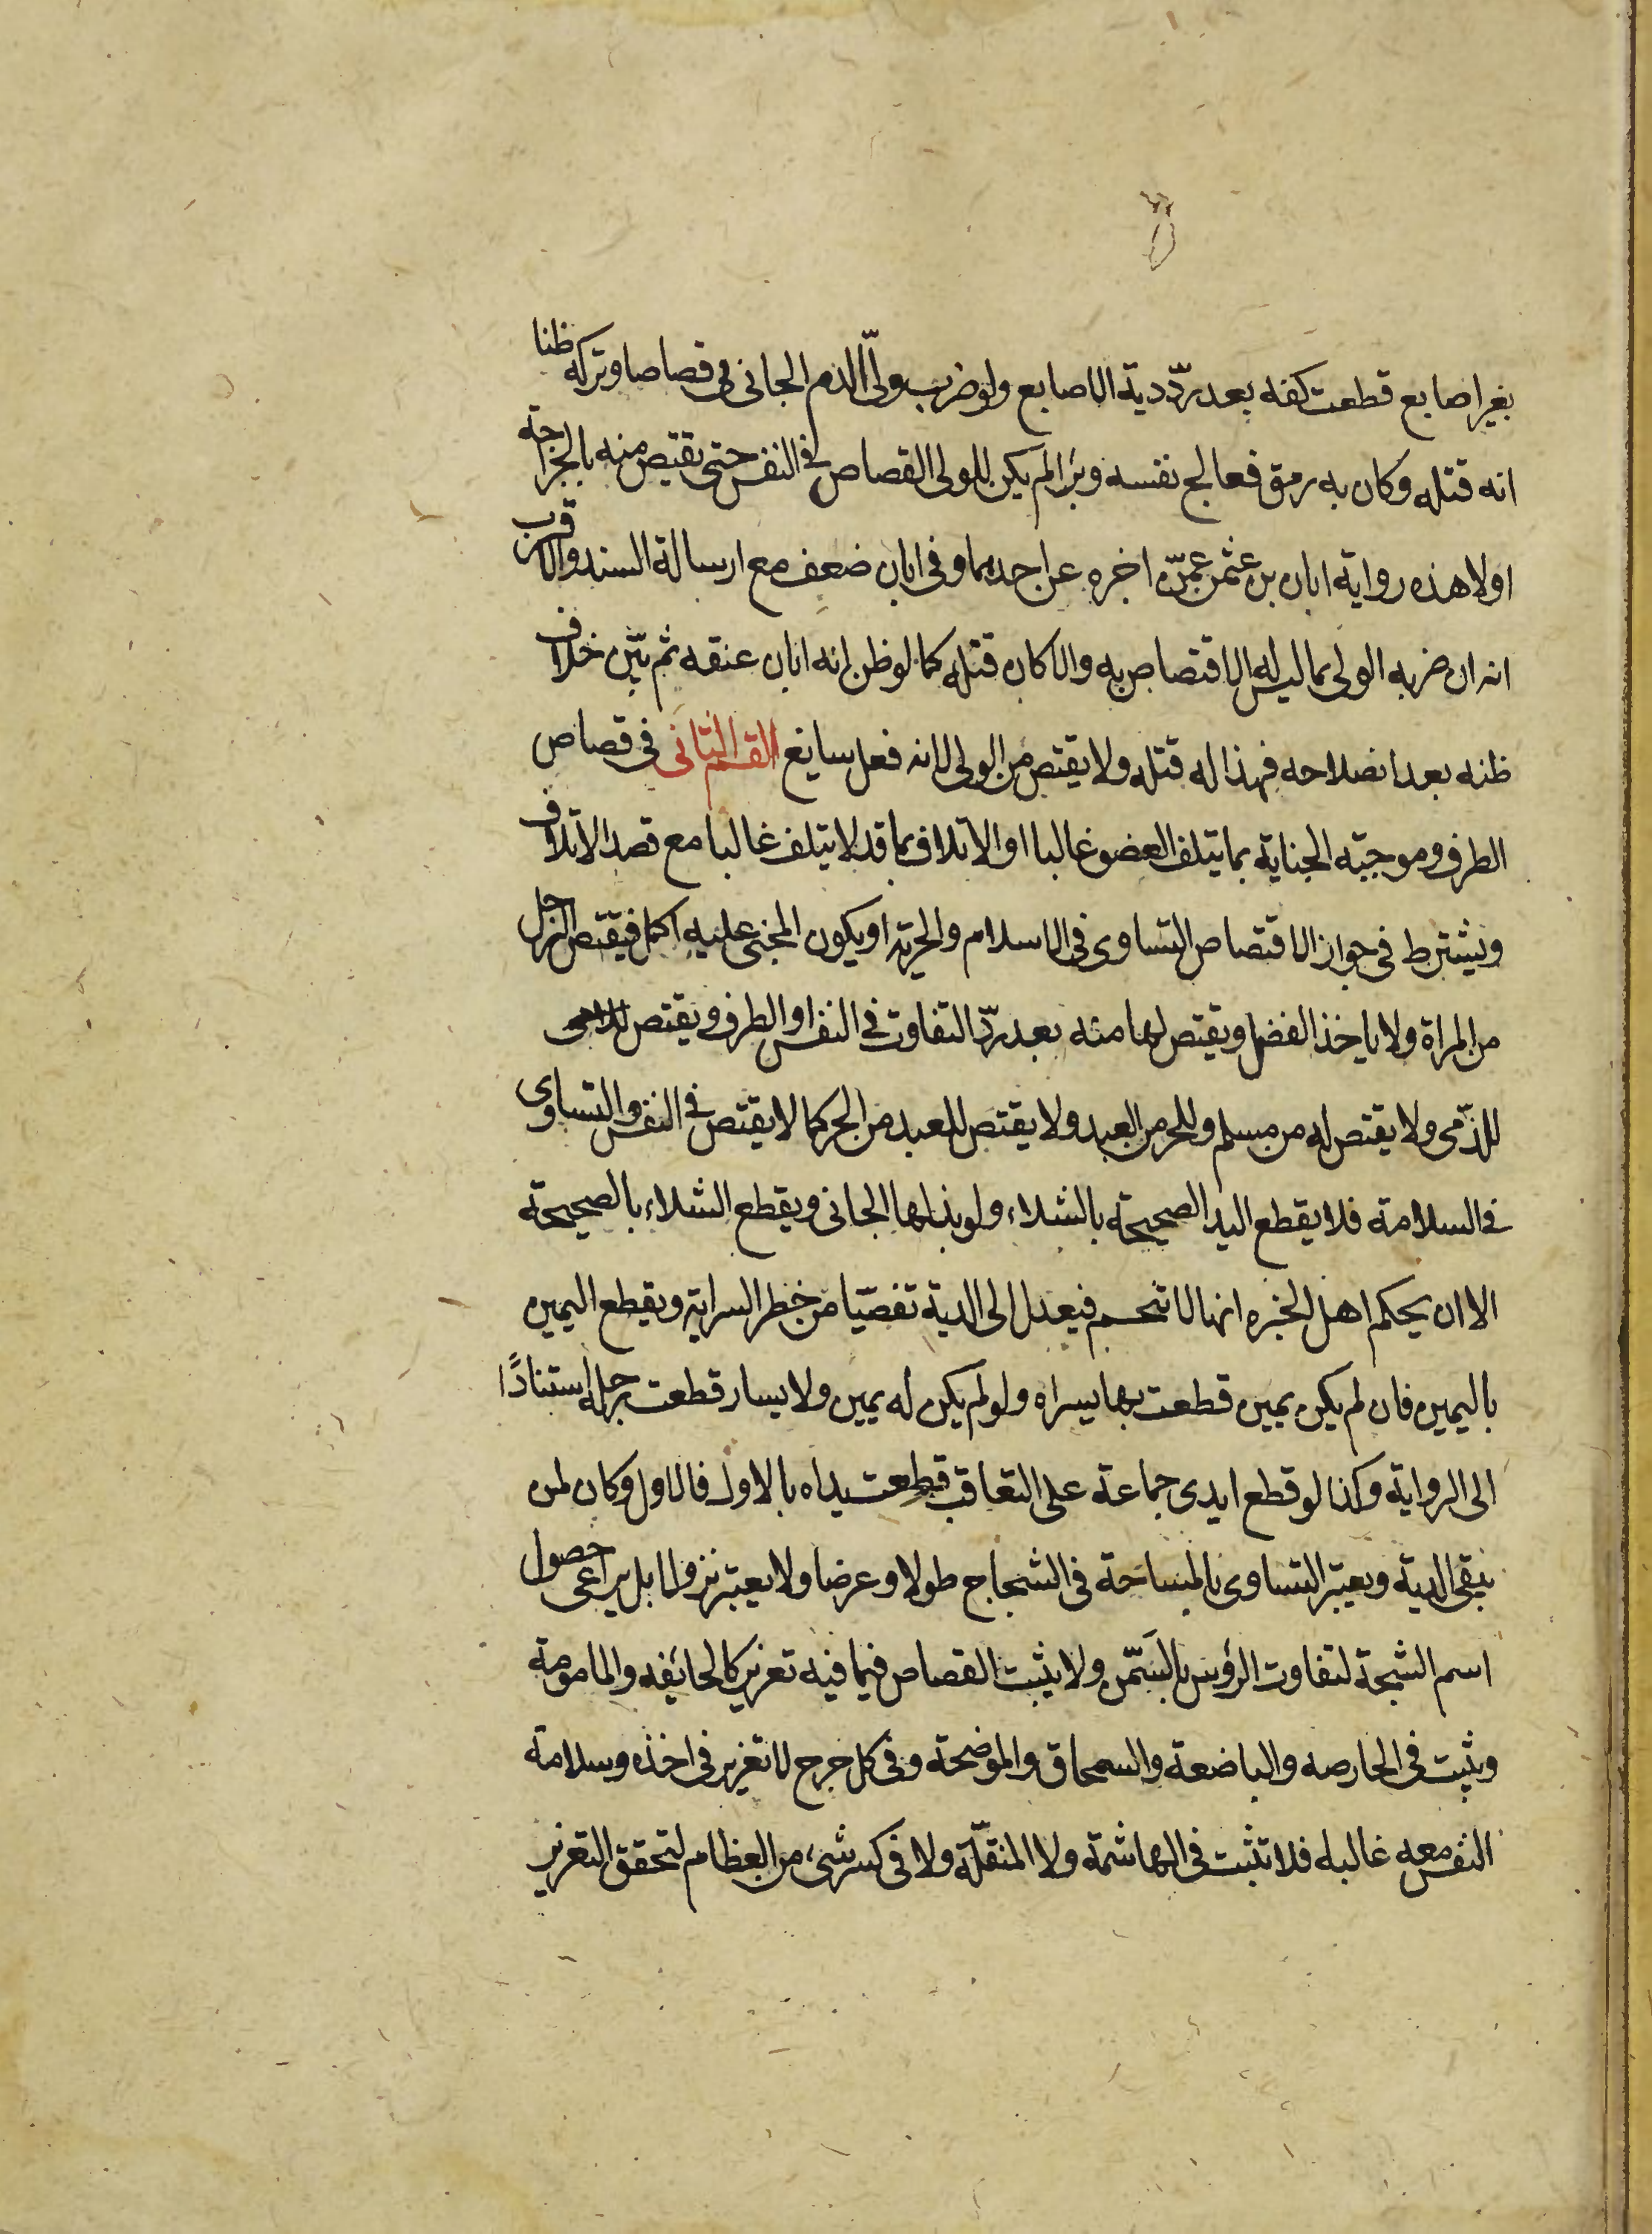 بغير اصابع قطعت كفه بعد ردّ دية الاصابع ولو ضرب ولىّ الدم الجانى قصاصا وتركه ظنا
انه قتله وكان به رمق فعالج نفسه وبرا لم يكن للولى القصاص فى النفس حتى يقتص منه بالجراحة
اولا هذه رواية ابان بن عثمن عمّن اخبره عن احدهما وفى ابان ضعف مع ارسالة السند والاقرب
انه ان ضربه الولى بما ليس له الاقتصاص به والا كان قتله كما لو ظن انه ابان عنقه ثم تبّين خلاف
ظنه بعد انصلاحه فهذا له قتله ولا يقتص من الولى لانه فعل سايغ القسم الثانى فى قصاص
الطرف وموجبته الجناية بما يتلف العضو غالبا او الاتلاف بما قد لا يتلف غالبا مع قصد الاتلاف
ويشترط فى جواز الاقتصاص التساوى فى الاسلام والحرية او يكون المجنى عليه اكمل فيقتص الرجل
من المراة ولا ياخذ الفضل ويقتص لها منه بعد ردّ التفاوت فى النفس او الطرف ويقتص للذمى
للذّمى ولا يقتص له من مسلم وللحر من العبد ولا يقتص للعبد من الحر كما لا يقتص فى النفس والتساوى
فى السلامة فلا يقطع اليد الصحيحة بالشلاء ولو بذلها الجانى ويقطع الشلاء بالصحيحة
الا ان يحكم اهل الخبره انها لا تحسم فيعدل الى الدية تفصّيا من خطر السراية ويقطع اليمين
باليمين فان لم يكن يمين قطعت بها يسراه ولو لم يكن له يمين ولا يسار قطعت رجله استنادًا
الى الرواية وكذا لو قطع ايدى جماعة على التعاقب قطعت يداه بالاول فالاول وكان لمن
يبقى الدية ويعتبر التساوى بالمساحة فى الشجاج طولا وعرضا ولا يعتبر نزولا بل يراعى حصول
اسم الشجة لتفاوت الرؤس بالسَمّن ولا يثبت القصاص فيما فيه تعزير كالجائفه والمامومة
ويثبت فى الحارصه والباضعة والسمحاق والموضحة وفى كل جرح لا تغرير فى اخذه وسلامة
النفس معه غالبه فلا تثبت فى الهاشمة ولا المنقلّة ولا فى كسر شىء من العظام لتحقق التغرير